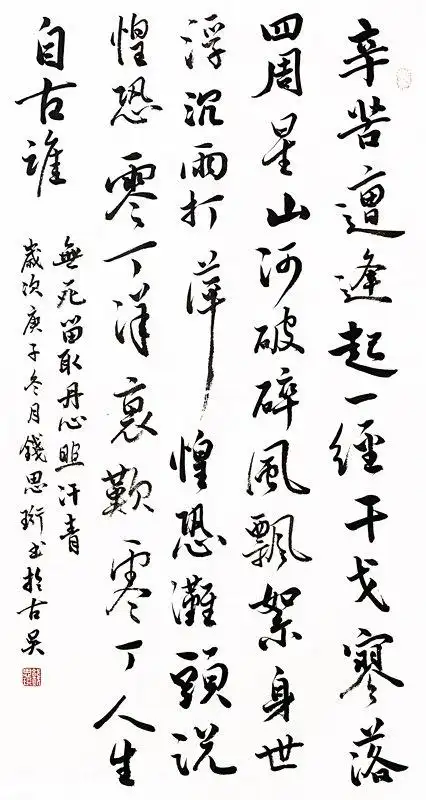 辛苦遭逢起一經干戈寥落
四周星山河破碎風飄絮身世
浮沉雨打萍惶恐灘頭說
惶恐零丁洋裏歎零丁人生
自古誰
無死留取丹心照汗青
歲次庚子冬月錢思書於古吳